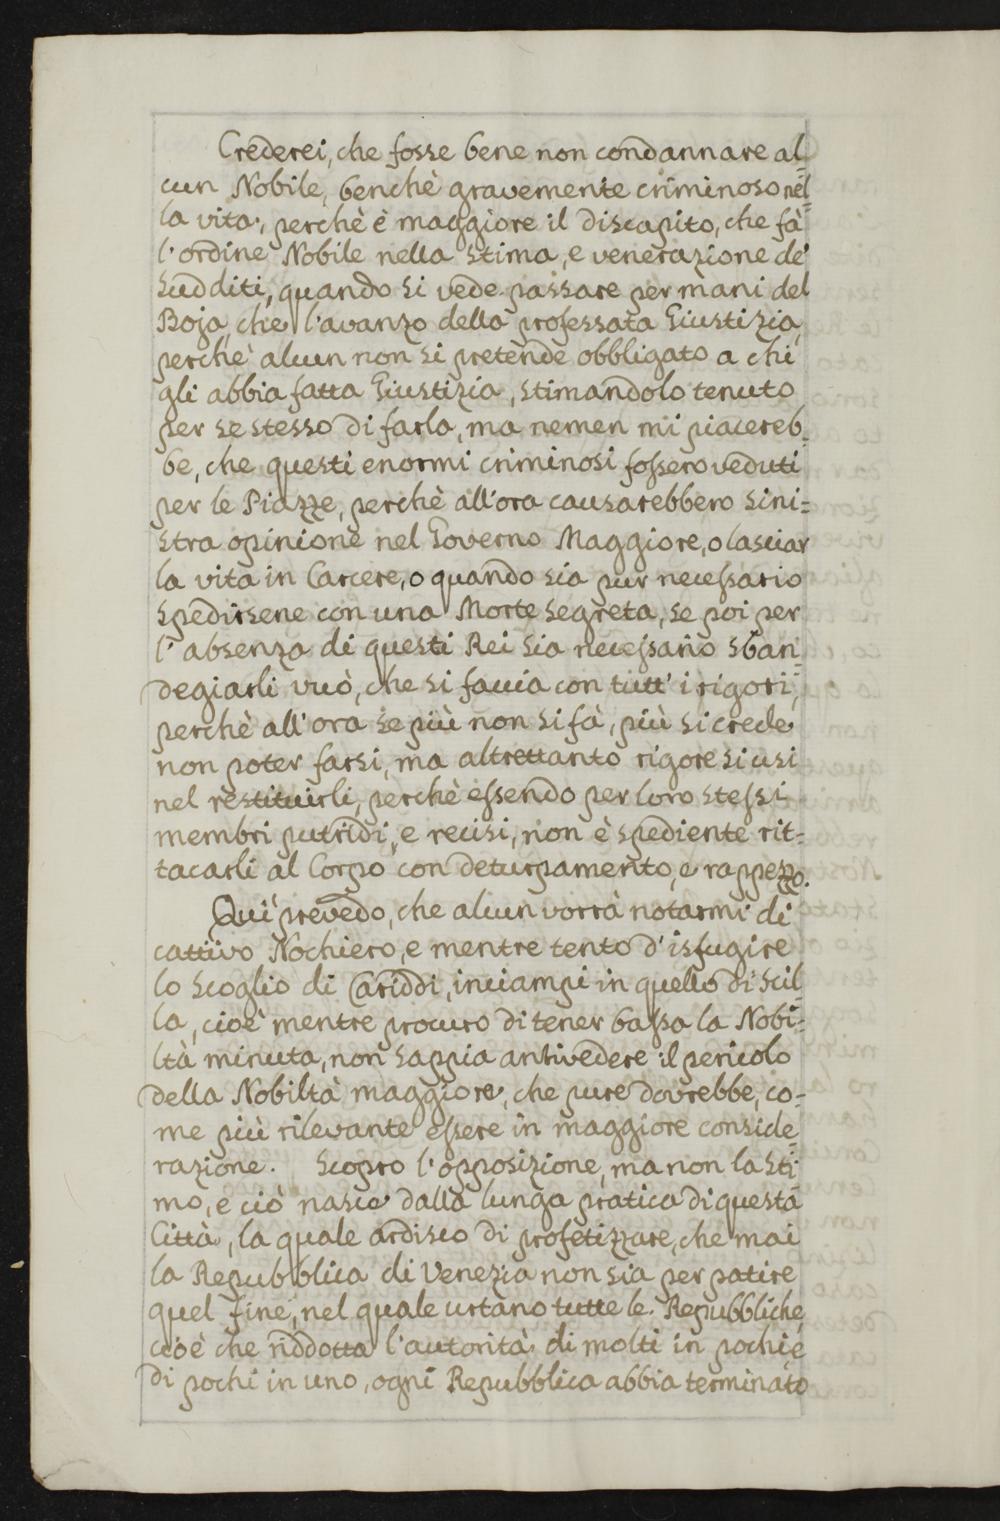 Crederei, che fosse bene non condannare al=
cun Nobile, benchè gravemente criminoso nel=
la vita, perchè è maggiore il discapito, che fà
l'ordine Nobile nella stima, e venerazione de'
Sudditi, quando si vede passare per mani del
Boja, che l'avanzo della professata Giustizia,
perchè alcun non si pretende obbligato a chi
gli abbia fatta Giustizia, stimandolo tenuto
per se stesso di farla, ma nemen mi piacereb=
be, che questi enormi criminosi fossero veduti
per le Piazze, perchè all'ora causarebbero sini=
stra opinione nel Governo Maggiore, o lasciar
la vita in Carcere, o quando sia pur necessario
Spedirsene con una Morte segreta, se poi per
l'absenza di questi Rei sia necessario sban=
degiarli vuò, che si faccia con tutt'i rigori,
perchè all'ora se più non si fà, più si crede
non poter farsi, ma altrettanto rigore si usi
nel restituirli, perchè essendo per loro stessi
membri putridi, e recisi, non è spediente rit=
tacarli al Corpo con deturpamento, e rappezzo.
Qui prevedo, che alcun vorrà notarmi di
cattivo Nochiero, e mentre tento d'isfugire
lo Scoglio di Cariddi, inciampi in quello di Scil=
la, cioè mentre procuro di tener bassa la Nobi=
ltà minuta, non sappia antivedere il pericolo
della Nobiltà maggiore, che pure dovrebbe, co-
me più rilevante essere in maggiore conside=
razione. Scopro l'opposizione, ma non la sti=
mo, e ciò nasce dalla lunga pratica di questa
Città, la quale ardisco di profetizzare, che mai
la Repubblica di Venezia non sia per patire
quel fine, nel quale urtano tutte le Repubbliche,
cioè che riddotta l'autorità di molti in pochi e
di pochi in uno, ogni Repubblica abbia terminato